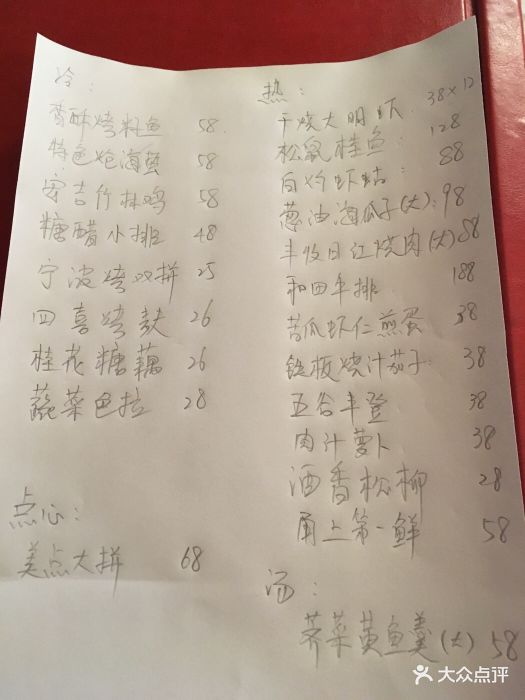 冷:
香酥烤籽鱼 58
特色炝海蜇 58
安吉竹林鸡 58
糖醋小排 48
宁波烤双拼 25
四喜烤麸 26
桂花糖藕 26
蔬菜色拉 28
点心:
美点大拼 68
热:
干烧大明虾 38×12
松鼠桂鱼 128
白灼虾蛄 88
葱油海瓜子(大) 98
丰收日红烧肉(大) 88
和四牛排 188
苦瓜虾仁煎蛋 38
铁板烧汁茄子 38
五谷丰登 38
肉汁萝卜 38
酒香松柳 28
甬上第一鲜 58
汤:
荠菜黄鱼羹(大) 58
大众点评